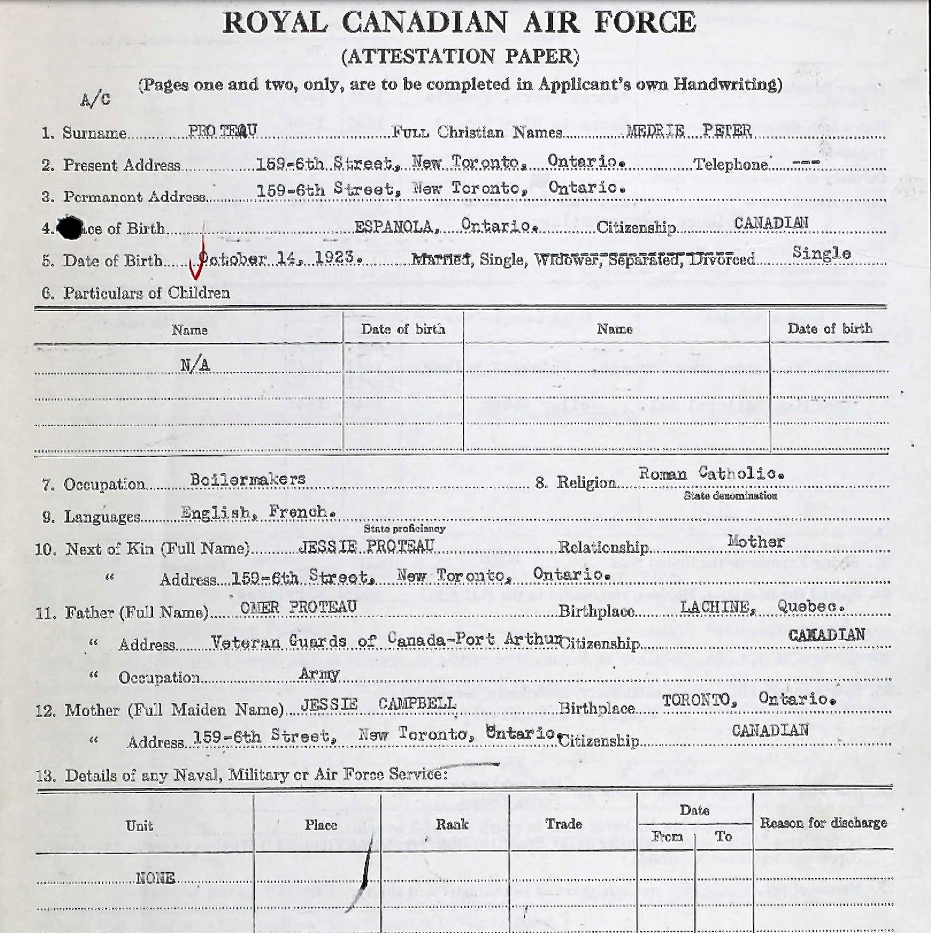 ROYAL CANADIAN AIR FORCE
(ATTESTATION PAPER)
(Pages one and two, only, are to be completed in Applicant's own Handwriting)
A/C
1. Surname PROTEAU FULL Christian Names MEDRIE PETER
2. Present Address 159-6th Street, New Toronto, Ontario. Telephone ---
3. Permanent Address 159-6th Street, New Toronto, Ontario.
4. ce of Birth ESPANOLA, Ontario. Citizenship CANADIAN
5. Date of Birth October 14, 1923. Married, Single, Widower, Separated, Divorced Single
6. Particulars of Children
Name Date of birth Name Date of birth
N/A
7. Occupation Boilermakers 8. Religion Roman Catholic.
State denomination
9. Languages English, French.
State proficiency
10. Next of Kin (Full Name) JESSIE PROTEAU Relationship Mother
" Address 159-6th Street, New Toronto, Ontario.
11. Father (Full Name) OMER PROTEAU Birthplace LACHINE, Quebec.
" Address Veteran Guards of Canada-Port Arthur Citizenship CANADIAN
" Occupation Army
12. Mother (Full Maiden Name) JESSIE CAMPBELL Birthplace TORONTO, Ontario.
" Address 159-6th Street, New Toronto, Ontario. Citizenship CANADIAN
13. Details of any Naval, Military or Air Force Service:
Unit Place Rank Trade Date Reason for discharge
From To
NONE